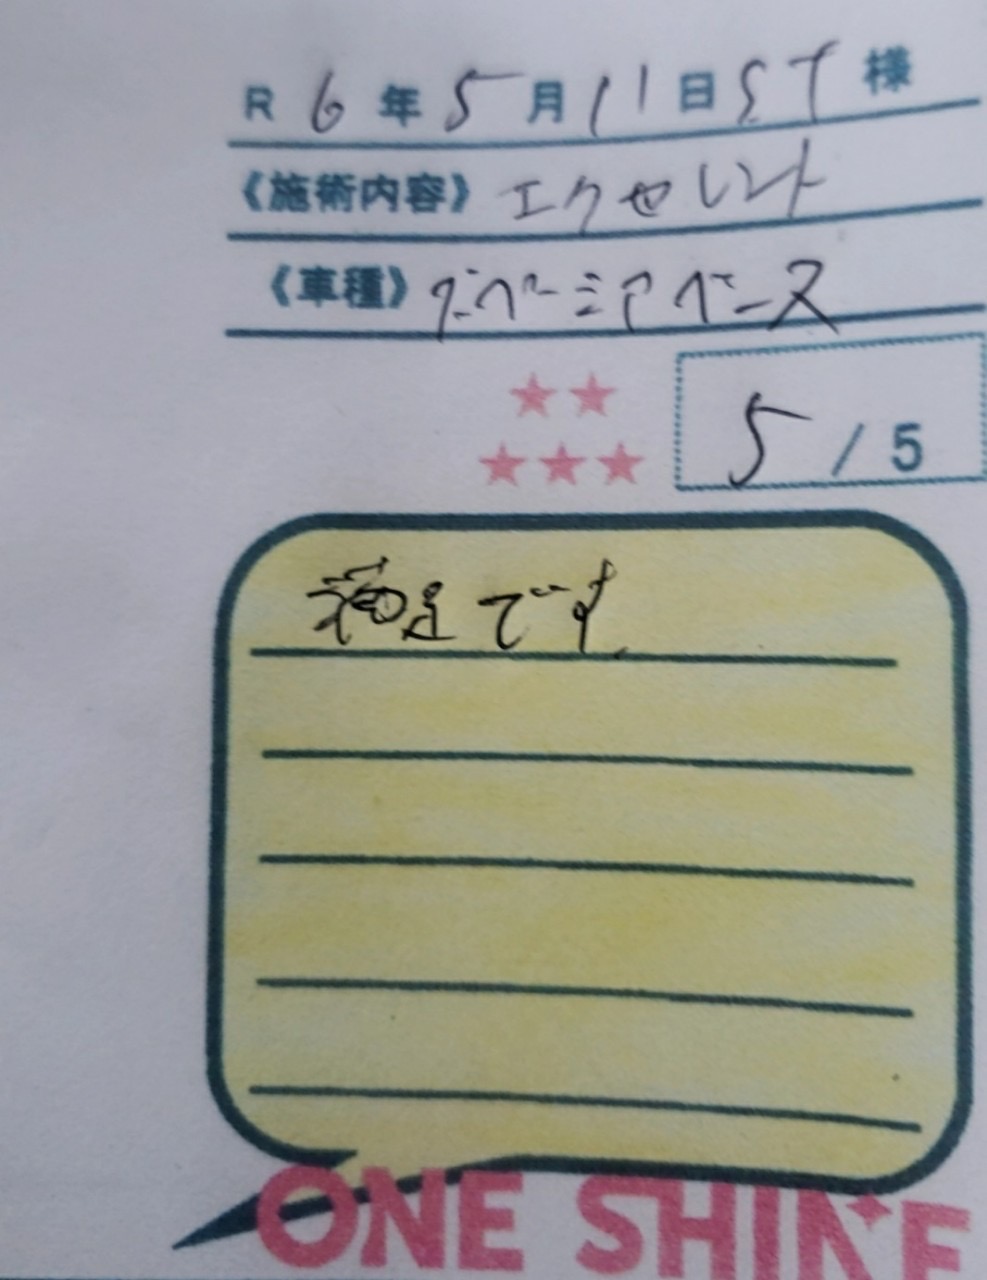 R 6 年 5 月 11 日 ST 様
《施術内容》 エクセレント
《車種》
5 / 5
満足です
ONE SHINE